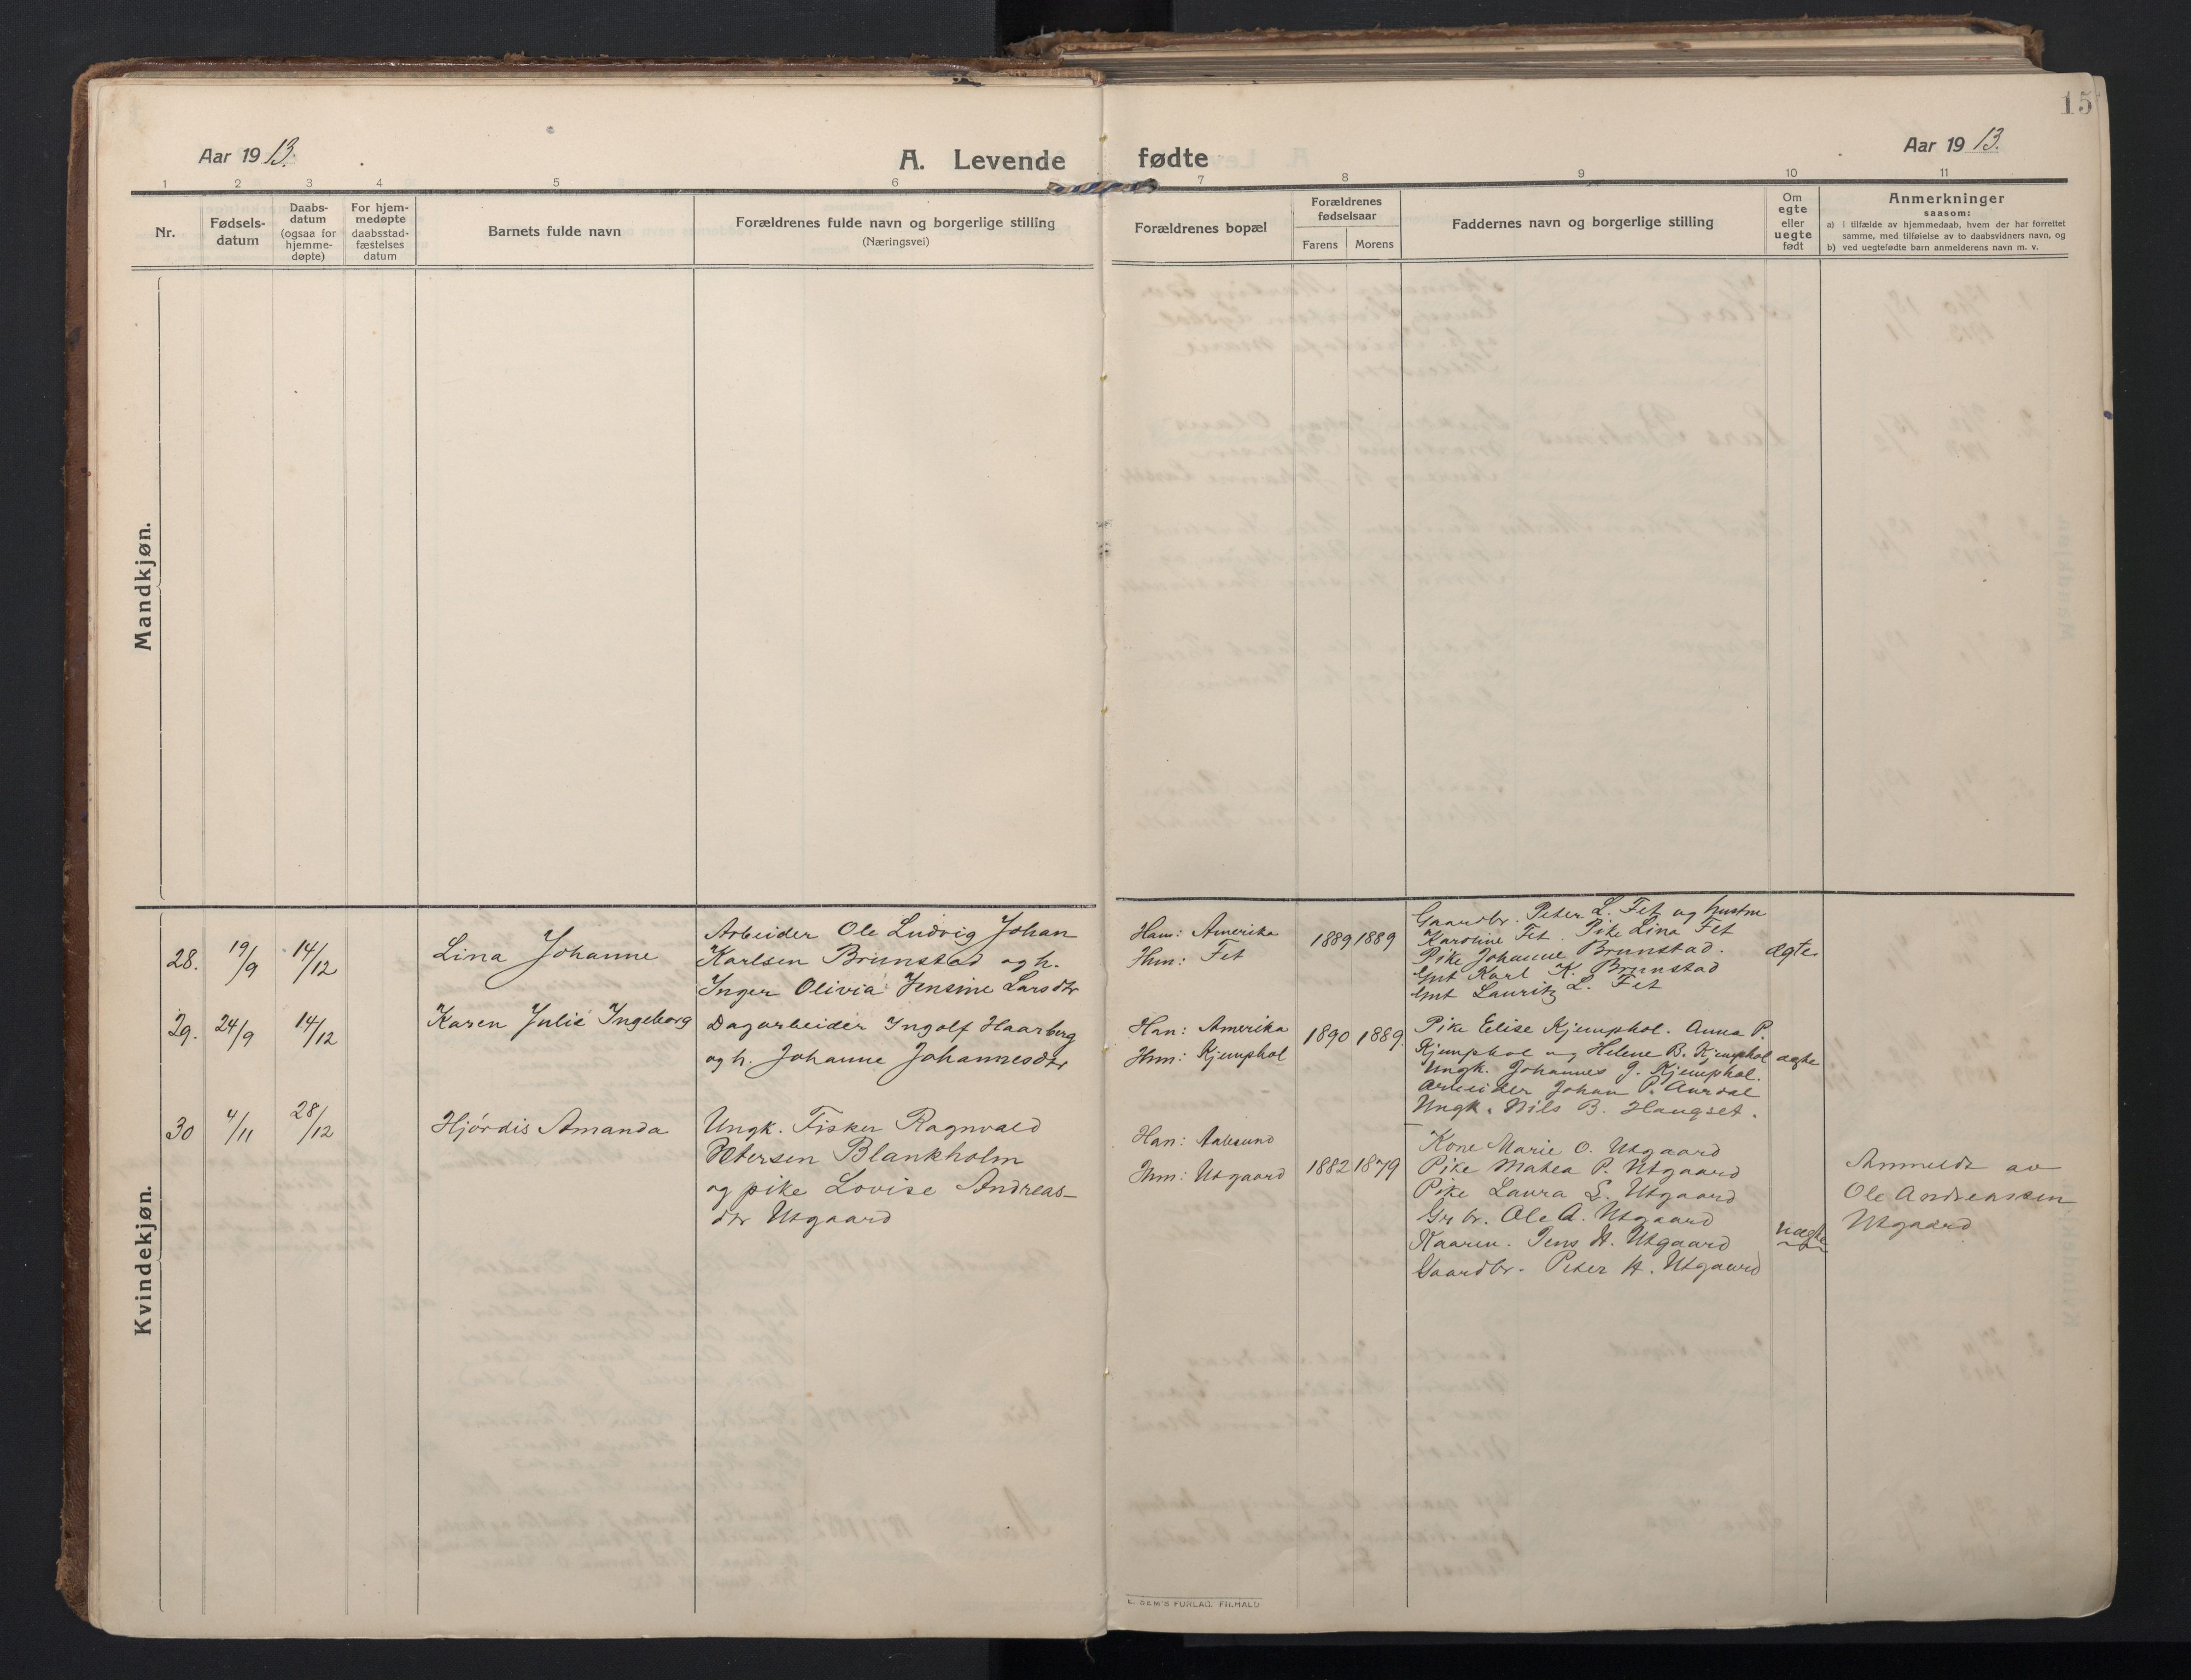 15
Aar 1913.
A. Levende fødte
Aar 1913.
1 2 3 4 5 6 7 8 9 10 11
Nr.
Fødsels-
datum
Daabs-
datum
(ogsaa for
hjemme-
døpte)
For hjem-
medøpte
daabsstad-
fæstelses
datum
Barnets fulde navn
Forældrenes fulde navn og borgerlige stilling
(Næringsvei)
Forældrenes bopæl
Forældrenes
fødselsaar
Farens Morens
Faddernes navn og borgerlige stilling
Om
egte
eller
uegte
født
Anmerkninger
saasom:
a) i tilfælde av hjemmedaab, hvem der har forrettet
samme, med tilføielse av to daabsvidners navn, og
b) ved uegtefødte barn anmelderens navn m. v.
Mandkjøn.
Kvindekjøn.
28. 19/9 14/12
Lina Johanne
Arbeider Ole Ludvig Johan
Karlsen Brunstad og h.
Inger Olivia Jensine Larsdtr
Han: Amerika
Hun: Fet
1889 1889
Gaardbr. Peter L. Fet og hustru
Karoline Fet. Pike Lina Fet
Pike Johanne Brunstad.
Gmt Karl K. Brunstad
Gmt Lauritz L. Fet
ægte
29. 24/9 14/12
Karen Julie Ingeborg
Dagarbeider Ingolf Haarberg
og h. Johanne Johannesdtr
Han: Amerika
Hun: Kjemphol
1890 1889.
Pike Elise Kjemphol. Anna P.
Kjemphol og Helene B. Kjemphol
Ungk. Johannes J. Kjemphol.
Arbeider Johan P. Aurdal
Ungk. Nils B. Haugset.
ægte
30 4/11 28/12
Hjördis Amanda
Ungk. Fisker Ragnvald
Petersen Blankholm
og pike Lovise Andreas-
dtr Utgaard
Han: Aalesund
Hun: Utgaard
1882 1879
Kone Marie O. Utgaard
Pike Matea P. Utgaard
Pike Laura S. Utgaard
Gr br. Ole A. Utgaard
Jens A. Utgaard
Gaardbr. Peter A. Utgaard
uægte
Anmeldt av
Ole Andreassen
Utgaard
E. SEM'S FORLAG. FR.HALD